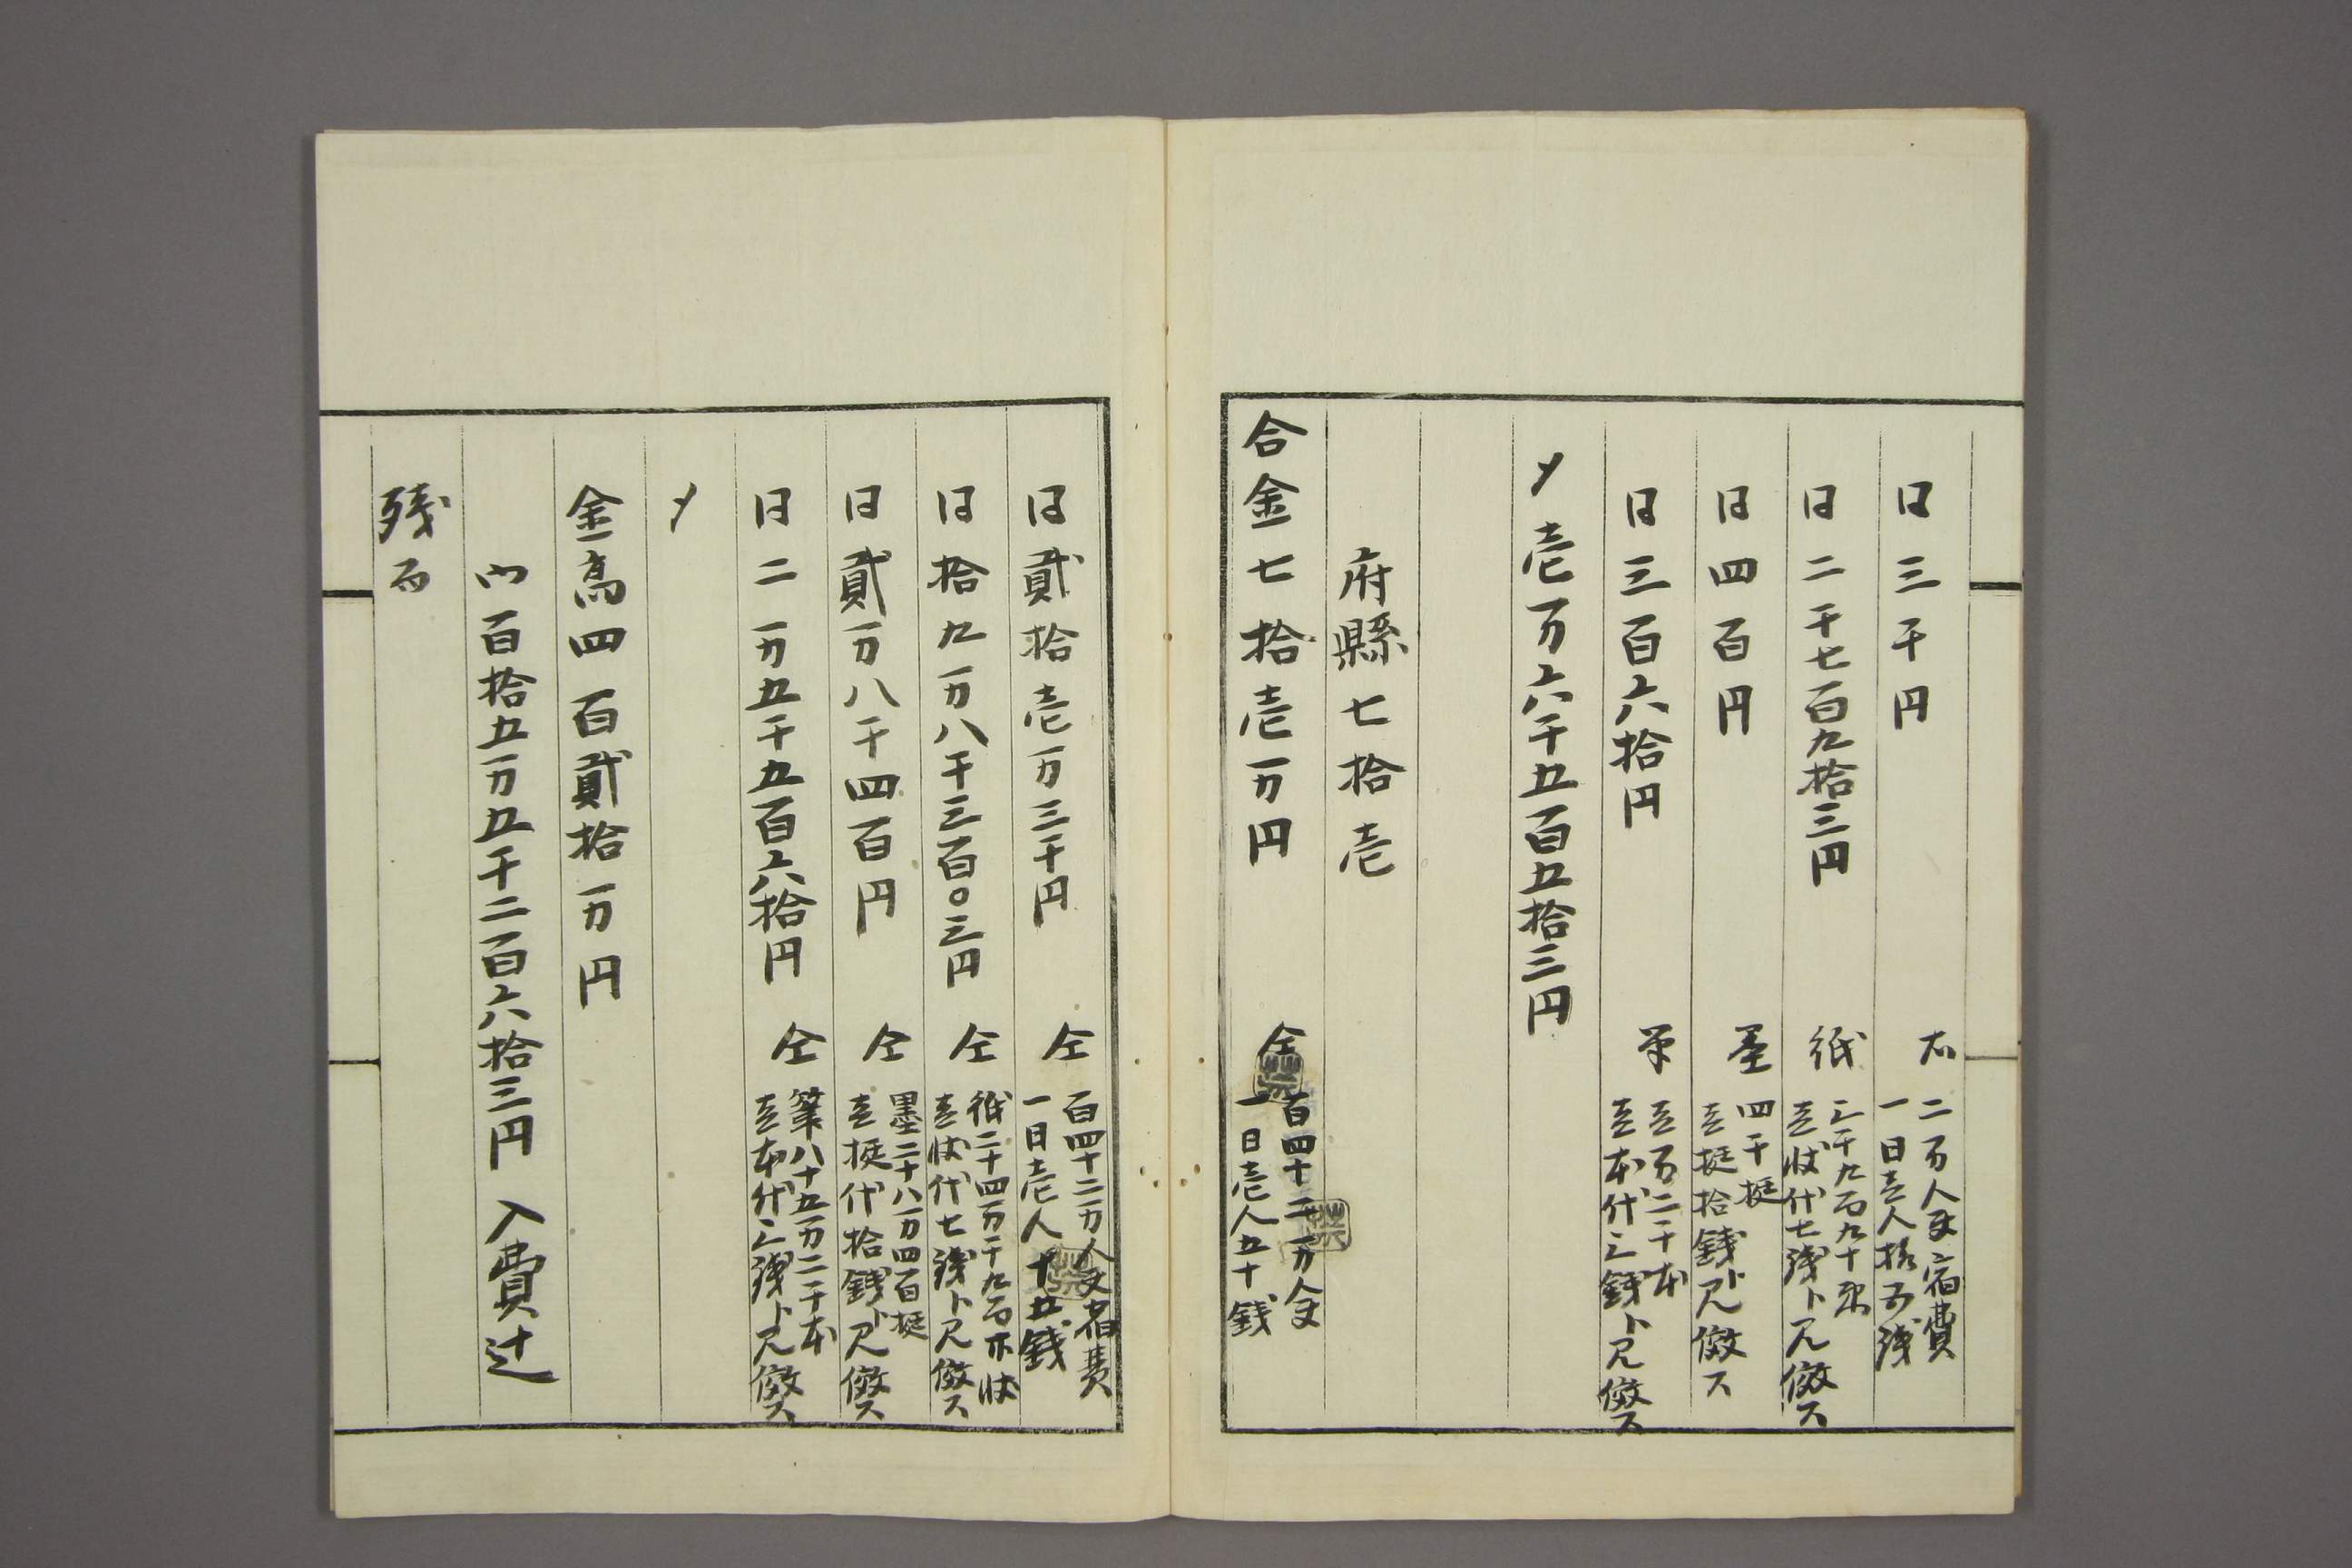 同三千円 右 二万人分宿費
一日壱人拾五銭
同二千七百九拾三円 紙 三千九百九十状
壱状代七銭ト見做ス
同四百円 墨 四千挺
壱挺拾銭ト見做ス
同三百六拾円 筆 壱万二千本
壱本代三銭ト見做ス
〆壱万六千五百五拾三円
府縣七拾壱
合金七拾壱万円 仝 百四十二万人分
一日壱人五十銭
同貳拾壱万三千円 仝 百四十二万人分宿費
一日壱人十五銭
同拾九万八千三百〇三円 仝 紙二十四万千九百 状
壱状代七銭ト見做ス
同貳万八千四百円 仝 墨二十八万四百挺
壱挺代拾銭ト見做ス
同二万五千五百六拾円 仝 筆八十五万二千本
壱本代三銭ト見做ス
〆
金高四百貳拾万円
内百拾五万五千二百六拾三円 入費辻
残而